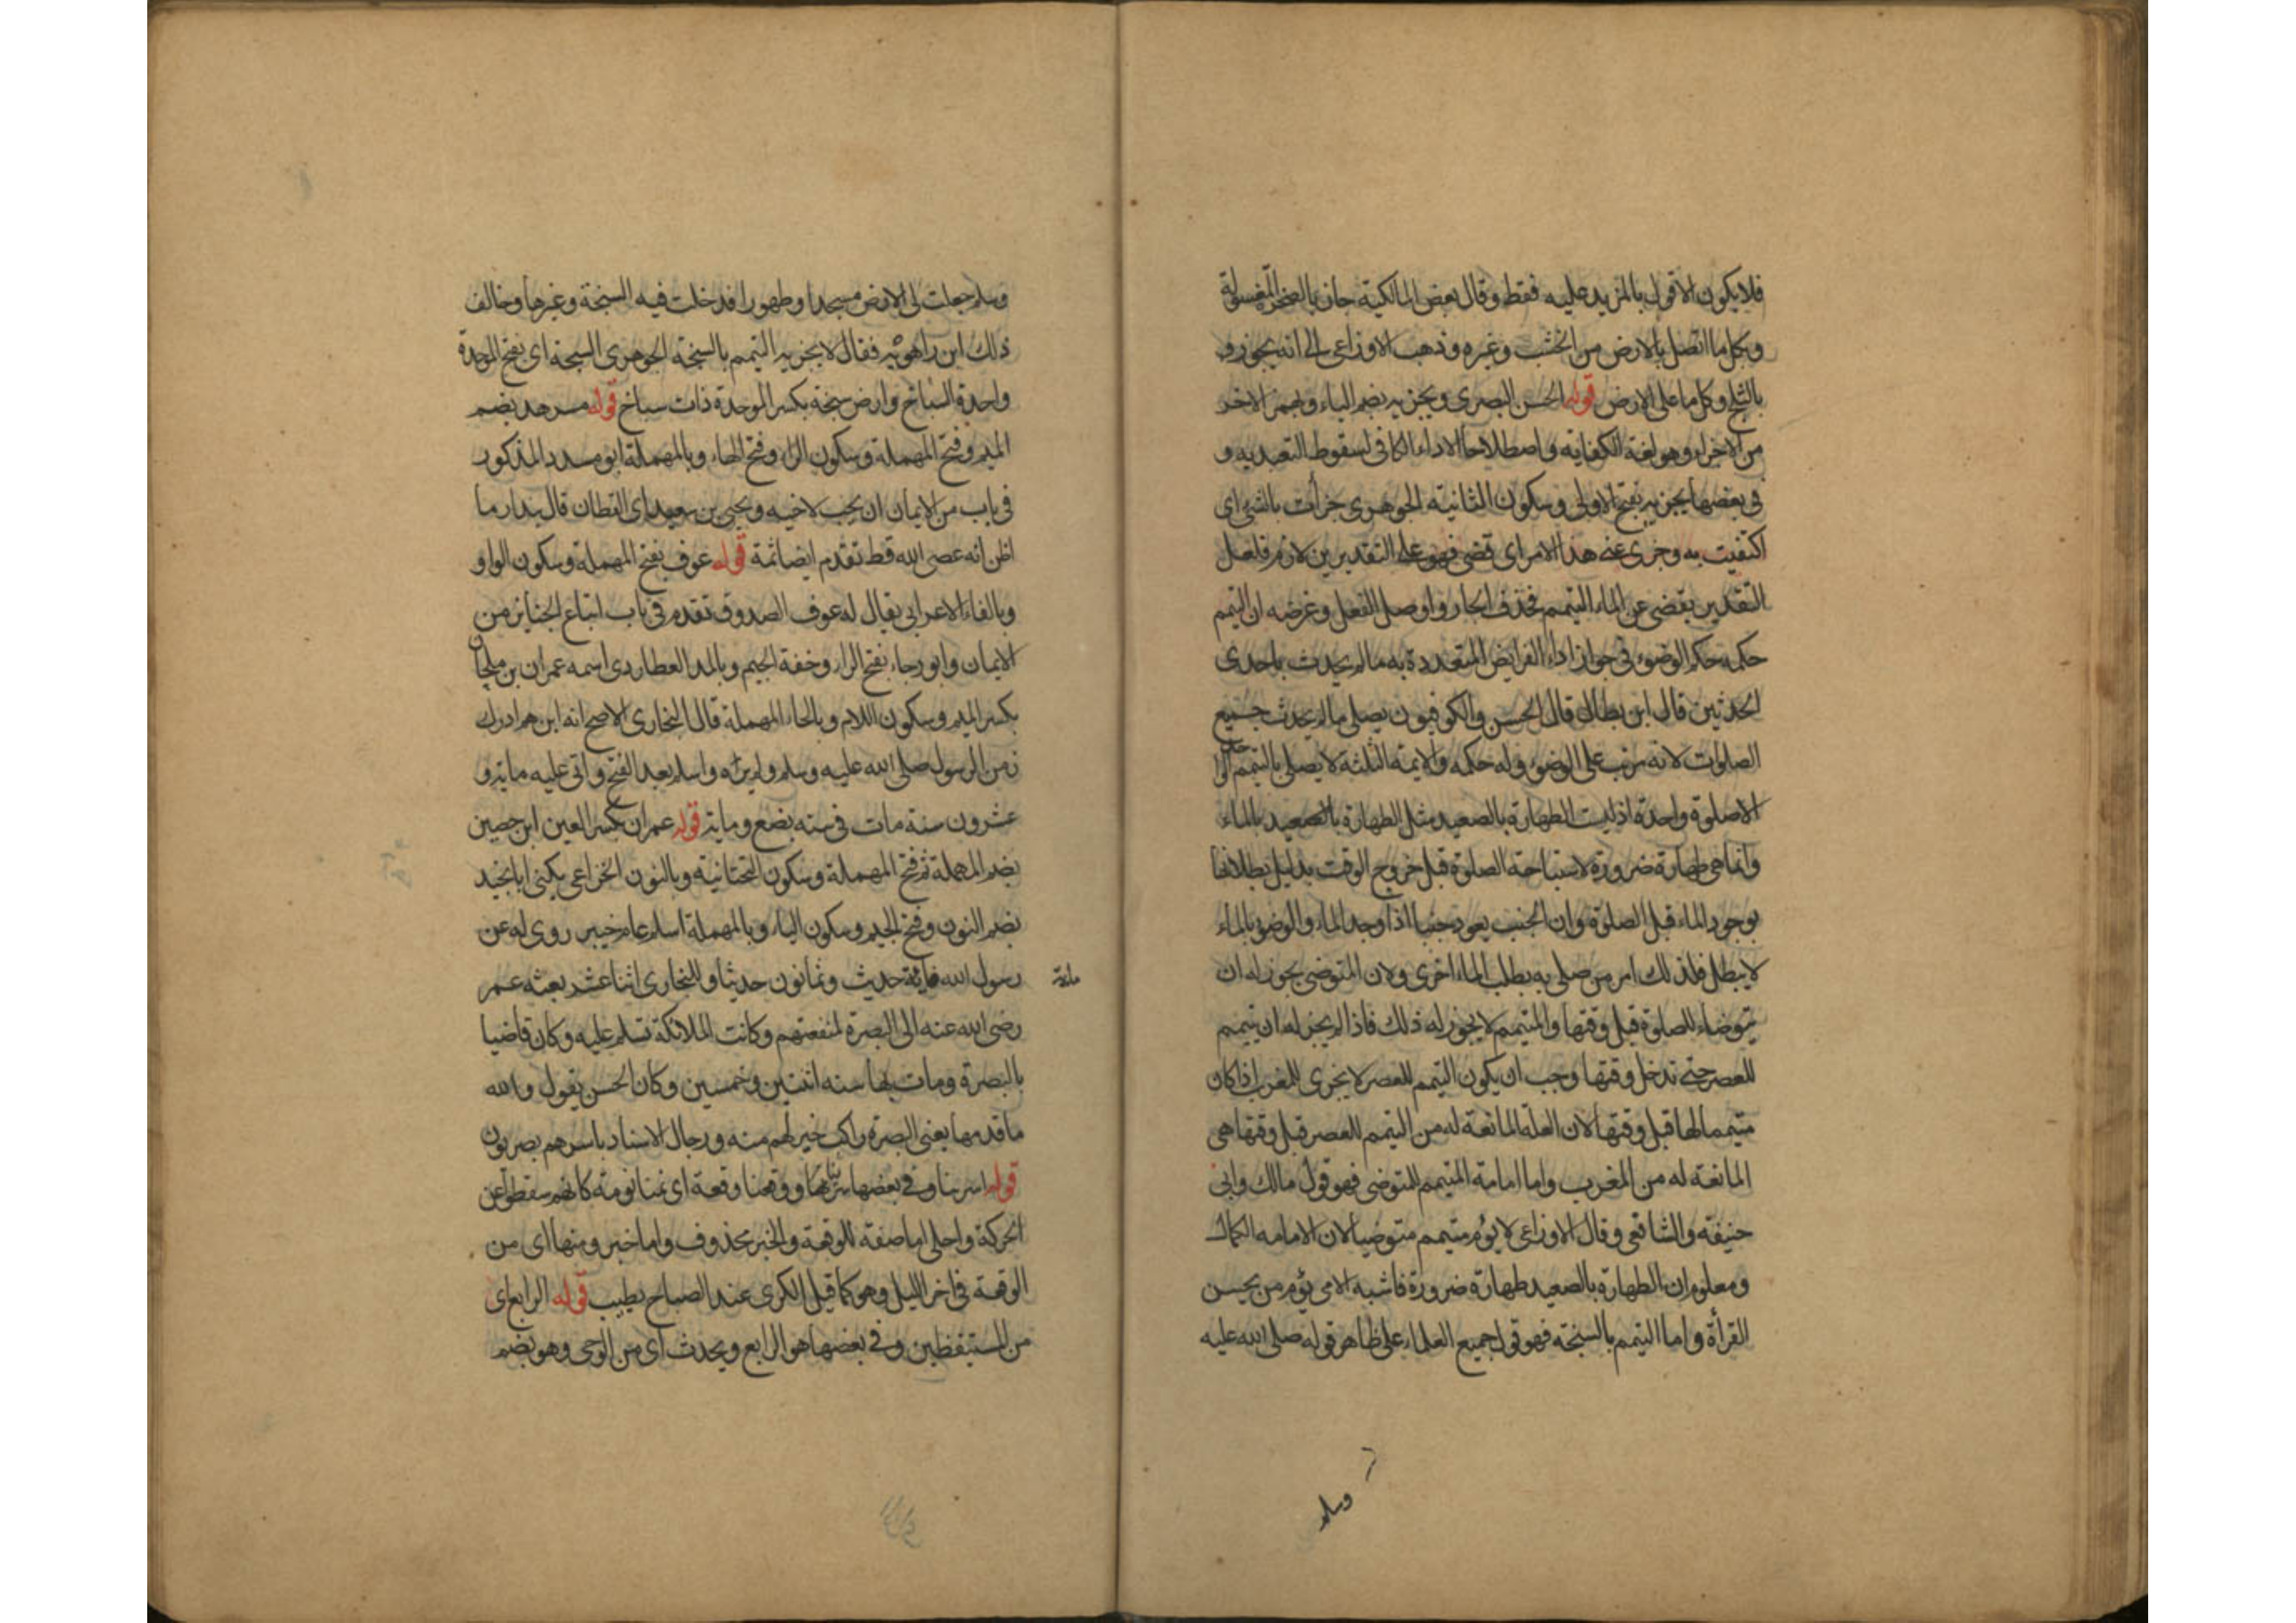 فلا يكون الا قولا بالمزيد عليه فقط وقال بعض المالكية جاز بالصخرة المغسولة
وبكل ما اتصل بالارض من الخشب وغيره وذهب الاوزاعى الى انه يجوز
بالثلج وكل ما على الارض قوله الحسن البصرى ويجزيه بضم الياء وبهمز الاخر
من الاجزاء وهو لغة الكفاية واصطلاحا الاداء الكافى لسقوط التعبد به و
فى بعضها يجزيه بفتح الاولى وسكون الثانية الجوهرى جزأت بالشئ اى
اكتفيت به وجزى عنه هذا الامر اى قضى فهو على التقديرين لازم فلعل
التقدير يقضى عن الماء التيمم فحذف الجار واوصل الفعل وغرضه ان التيمم
حكمه حكم الوضوء فى جواز اداء الفرايض المتعددة به ما لم يحدث باحدى
الحدثين قال ابن بطال قال الحسن والكوفيون يصلى ما لم يحدث جميع
الصلوات لانه مرتب على الوضوء وله حكمه والايمة الثلثة لا يصلى بالتيمم
الا صلوة واحدة اذ ليست الطهارة بالصعيد مثل الطهارة بالماء
وانما هى طهارة ضرورة لاستباحة الصلوة قبل خروج الوقت بدليل بطلانها
بوجود الماء قبل الصلوة وان الجنب يعود جنبا اذا وجد الماء والوضوء بالماء
لا يبطل فلذلك امر من صلى به بطلب الماء اخرى ولان المتوضى يجوز له ان
يتوضاء للصلوة قبل وقتها والمتيمم لا يجوز له ذلك فاذا لم يجز له ان يتيمم
للعصر حتى تدخل وقتها وجب ان يكون التيمم للعصر لا يجزى للمغرب اذا كان
متيمما لها قبل وقتها لان العلة المانعة له من التيمم للعصر قبل وقتها هى
المانعة له من المغرب واما امامة المتيمم للمتوضى فهو قول مالك وابى
حنيفة والشافعى وقال الاوزاعى لا يؤم متيمم متوضيا لان الامامة الكمال
ومعلوم ان الطهارة بالصعيد طهارة ضرورة فاشبه الامى يؤم من يحسن
القرأة واما التيمم بالسبخة فهو قول جميع العلماء على ظاهر قوله صلى الله عليه
وسلم
وسلم جعلت لى الارض مسجدا وطهورا فدخلت فيه السبخة وغيرها وخالف
ذلك ابن راهويه فقال لا يجزيه التيمم بالسبخة الجوهرى السبخة اى بفتح الموحدة
واحدة السباخ وارض سبخة بكسر الموحدة ذات سباخ قوله مسرهد بضم
الميم وفتح المهملة وسكون الراء وفتح الهاء وبالمهملة ابو مسدد المذكور
فى باب من الايمان ان يحب لاخيه ويحيى بن سعيد اى القطان قال بندار ما
اظن انه عصى الله قط تقدم ايضا ثمة قوله عوف بفتح المهملة وسكون الواو
وبالفاء الاعرابى يقال له عوف الصدوق تقدم فى باب اتباع الجنايز من
الايمان وابو رجاء بفتح الراء وخفة الجيم وبالمد العطاردى اسمه عمران بن ملحان
بكسر الميم وسكون اللام وبالحاء المهملة قال البخارى الاصح انه ابن هم ادرك
زمن الرسول صلى الله عليه وسلم ولم يره واسلم بعد الفتح واتى عليه ماية و
عشرون سنة مات فى سنه بضع وماية قوله عمران بكسر العين ابن حصين
بضم المهملة ثم فتح المهملة وسكون التحتانية وبالنون الخزاعى يكنى ابا نجيد
بضم النون وفتح الجيم وسكون الياء وبالمهملة اسلم عام خيبر روى له عن
رسول الله مائة حديث وثمانون حديثا وللبخارى اثنا عشر بعثه عمر
ماية
رضى الله عنه الى البصرة لمنفعتهم وكانت الملائكة تسلم عليه وكان قاضيا
بالبصرة ومات بها سنه اثنتين وخمسين وكان الحسن يقول والله
ما قدمها يعنى البصرة راكب خير لهم منه ورجال الاسناد باسرهم بصريون
قوله اسرينا وفى بعضها سرينا ووقعنا وقعة اى نمنا نومة كانهم سقطوا عن
الحركة واحلى اما صفة للوقعة والخبر محذوف واما خبر ومنها اى من
الوقعة فى اخر الليل وهو كما قيل الكرى عند الصباح يطيب قوله الرابع اى
من المستيقظين وفى بعضها هو الرابع ويحدث اى من الوحى وهو بضم